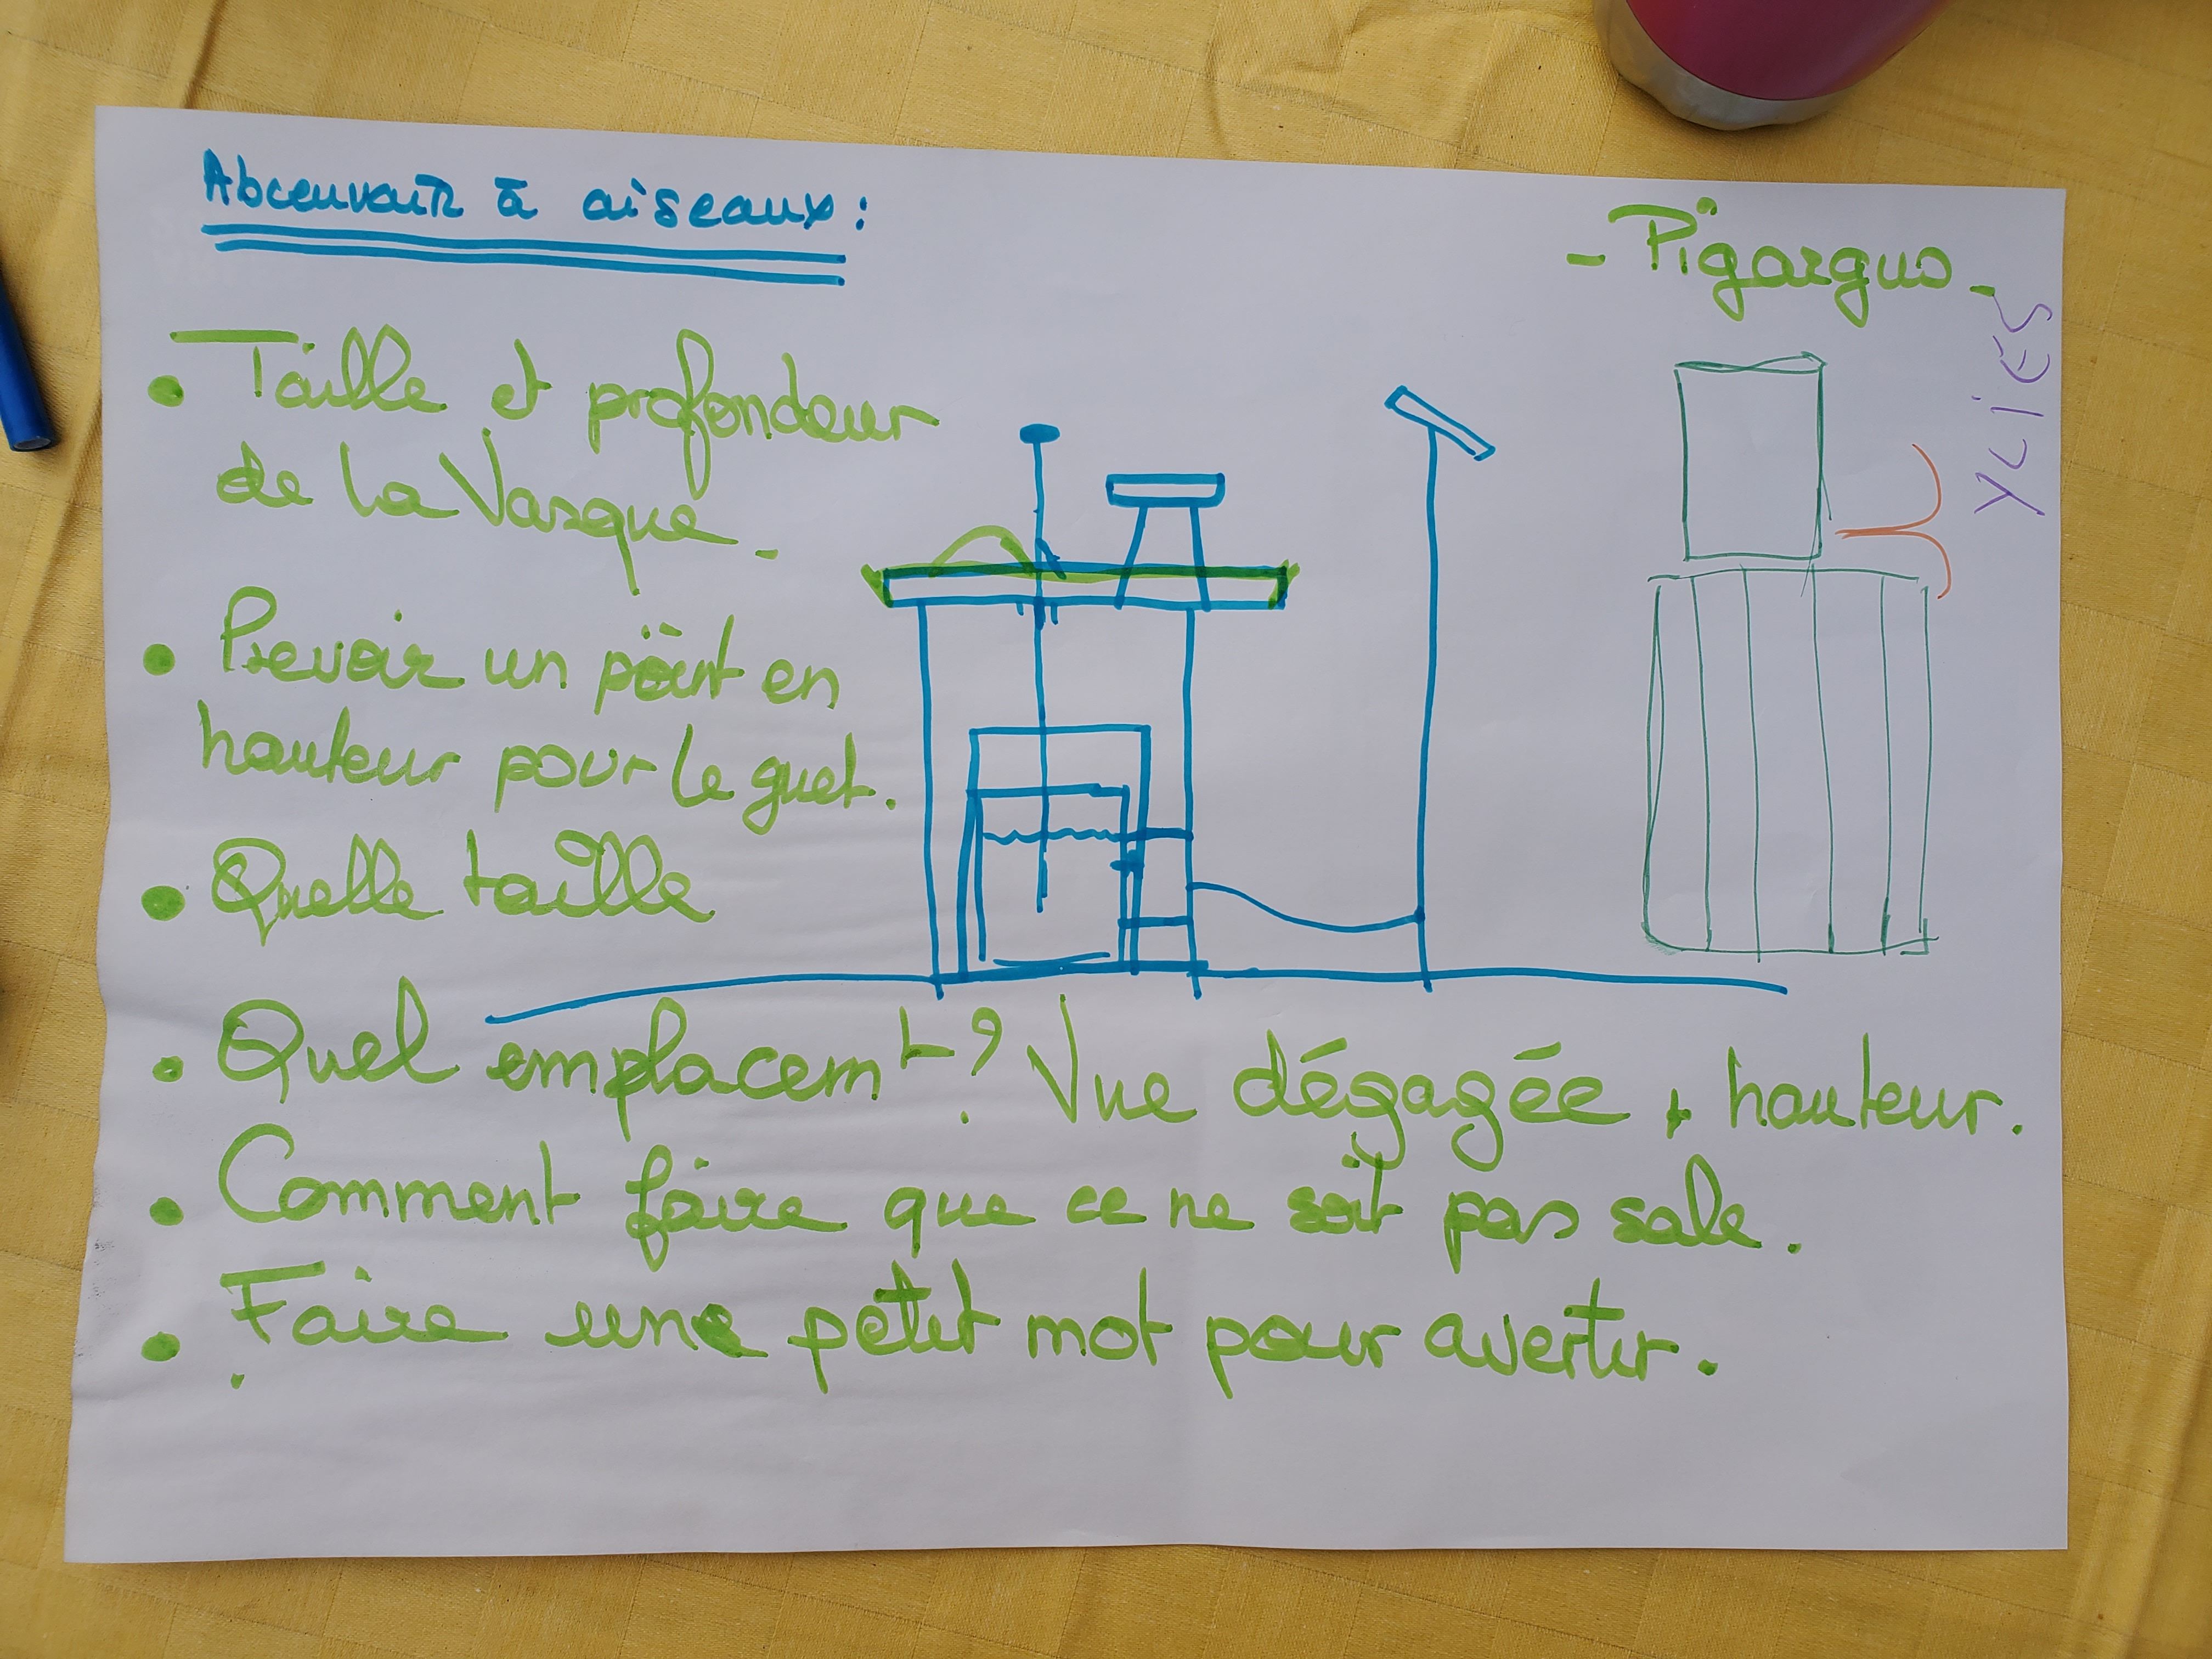 Abreuvoir à oiseaux :
- Pigargus -
YLIES
• Taille et profondeur
de la Vasque -
• Prevoir un point en
hauteur pour le guet.
• Quelle taille
• Quel emplacemt ? Vue dégagée + hauteur.
• Comment faire que ce ne soit pas sale.
• Faire une petit mot pour avertir.